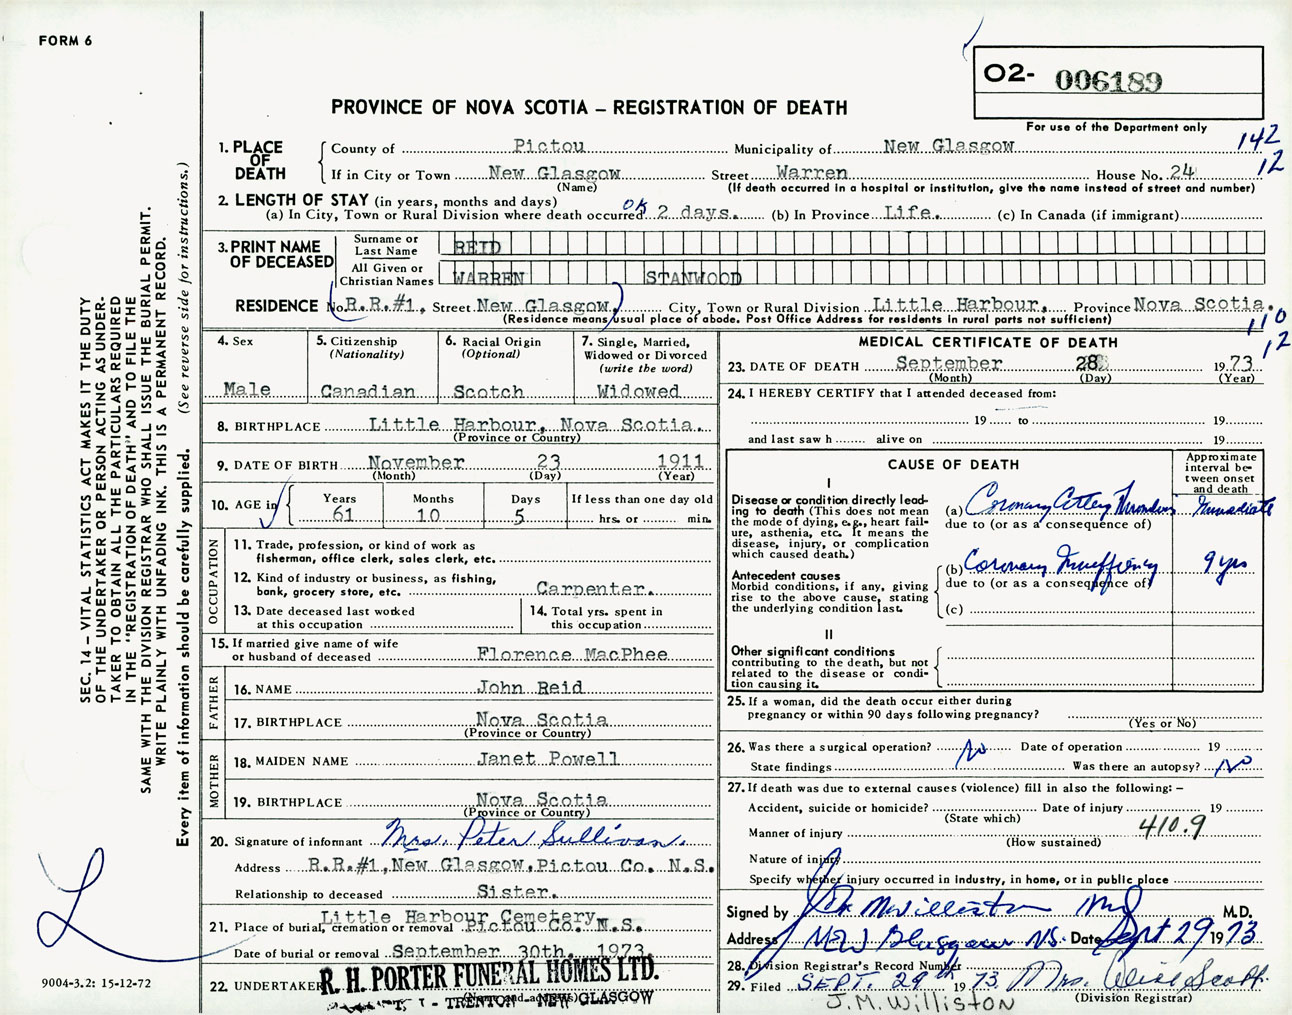 FORM 6
O2- 006189
PROVINCE OF NOVA SCOTIA – REGISTRATION OF DEATH
For use of the Department only
142
12
1. PLACE OF DEATH
County of Pictou Municipality of New Glasgow
If in City or Town New Glasgow Street Warren House No. 24
(Name) (If death occurred in a hospital or institution, give the name instead of street and number)
2. LENGTH OF STAY (in years, months and days)
(a) In City, Town or Rural Division where death occurred OK 2 days. (b) In Province Life. (c) In Canada (if immigrant)
3. PRINT NAME OF DECEASED
Surname or Last Name REID
All Given or Christian Names WARREN STANWOOD
RESIDENCE No. R.R.#1, Street New Glasgow, City, Town or Rural Division Little Harbour, Province Nova Scotia.
(Residence means usual place of abode. Post Office Address for residents in rural parts not sufficient)
110
12
4. Sex
Male
5. Citizenship
(Nationality)
Canadian
6. Racial Origin
(Optional)
Scotch
7. Single, Married,
Widowed or Divorced
(write the word)
Widowed
8. BIRTHPLACE Little Harbour, Nova Scotia.
(Province or Country)
9. DATE OF BIRTH November 23 1911
(Month) (Day) (Year)
10. AGE in
Years Months Days If less than one day old
61 10 5 hrs. or min.
OCCUPATION
11. Trade, profession, or kind of work as
fisherman, office clerk, sales clerk, etc.
12. Kind of industry or business, as fishing,
bank, grocery store, etc. Carpenter.
13. Date deceased last worked
at this occupation
14. Total yrs. spent in
this occupation
15. If married give name of wife
or husband of deceased Florence MacPhee
FATHER
16. NAME John Reid
17. BIRTHPLACE Nova Scotia
(Province or Country)
MOTHER
18. MAIDEN NAME Janet Powell
19. BIRTHPLACE Nova Scotia
(Province or Country)
20. Signature of informant Mrs. Peter Sullivan.
Address R.R.#1, New Glasgow, Pictou Co. N.S.
Relationship to deceased Sister.
Little Harbour Cemetery
21. Place of burial, cremation or removal Pictou Co. N.S.
Date of burial or removal September 30th, 1973
22. UNDERTAKER R. H. PORTER FUNERAL HOMES LTD.
(Name and address)
TRENTON NEW GLASGOW
MEDICAL CERTIFICATE OF DEATH
23. DATE OF DEATH September 28 1973
(Month) (Day) (Year)
24. I HEREBY CERTIFY that I attended deceased from:
19 to 19
and last saw h alive on 19
CAUSE OF DEATH
Approximate
interval be-
tween onset
and death
I
Disease or condition directly lead-
ing to death (This does not mean
the mode of dying, e.g., heart fail-
ure, asthenia, etc. It means the
disease, injury, or complication
which caused death.)
(a) Coronary Artery Thrombosis Immediate
due to (or as a consequence of)
Antecedent causes
Morbid conditions, if any, giving
rise to the above cause, stating
the underlying condition last.
(b) Coronary Insufficiency 9 yrs
due to (or as a consequence of)
(c)
II
Other significant conditions
contributing to the death, but not
related to the disease or condi-
tion causing it.
25. If a woman, did the death occur either during
pregnancy or within 90 days following pregnancy?
(Yes or No)
26. Was there a surgical operation? No Date of operation 19
State findings Was there an autopsy? No
27. If death was due to external causes (violence) fill in also the following: –
Accident, suicide or homicide? Date of injury 19
(State which)
410.9
Manner of injury
(How sustained)
Nature of injury
Specify whether injury occurred in industry, in home, or in public place
Signed by J M Williston MD M.D.
Address New Glasgow NS. Date Sept 29 1973
28. Division Registrar's Record Number
29. Filed SEPT. 29th 1973 Mrs. Scott
J.M. Williston (Division Registrar)
SEC. 14 – VITAL STATISTICS ACT MAKES IT THE DUTY
OF THE UNDERTAKER OR PERSON ACTING AS UNDER-
TAKER TO OBTAIN ALL THE PARTICULARS REQUIRED
IN THE "REGISTRATION OF DEATH" AND TO FILE THE
SAME WITH THE DIVISION REGISTRAR WHO SHALL ISSUE THE BURIAL PERMIT.
WRITE PLAINLY WITH UNFADING INK. THIS IS A PERMANENT RECORD.
Every item of information should be carefully supplied. (See reverse side for instructions.)
9004-3.2: 15-12-72